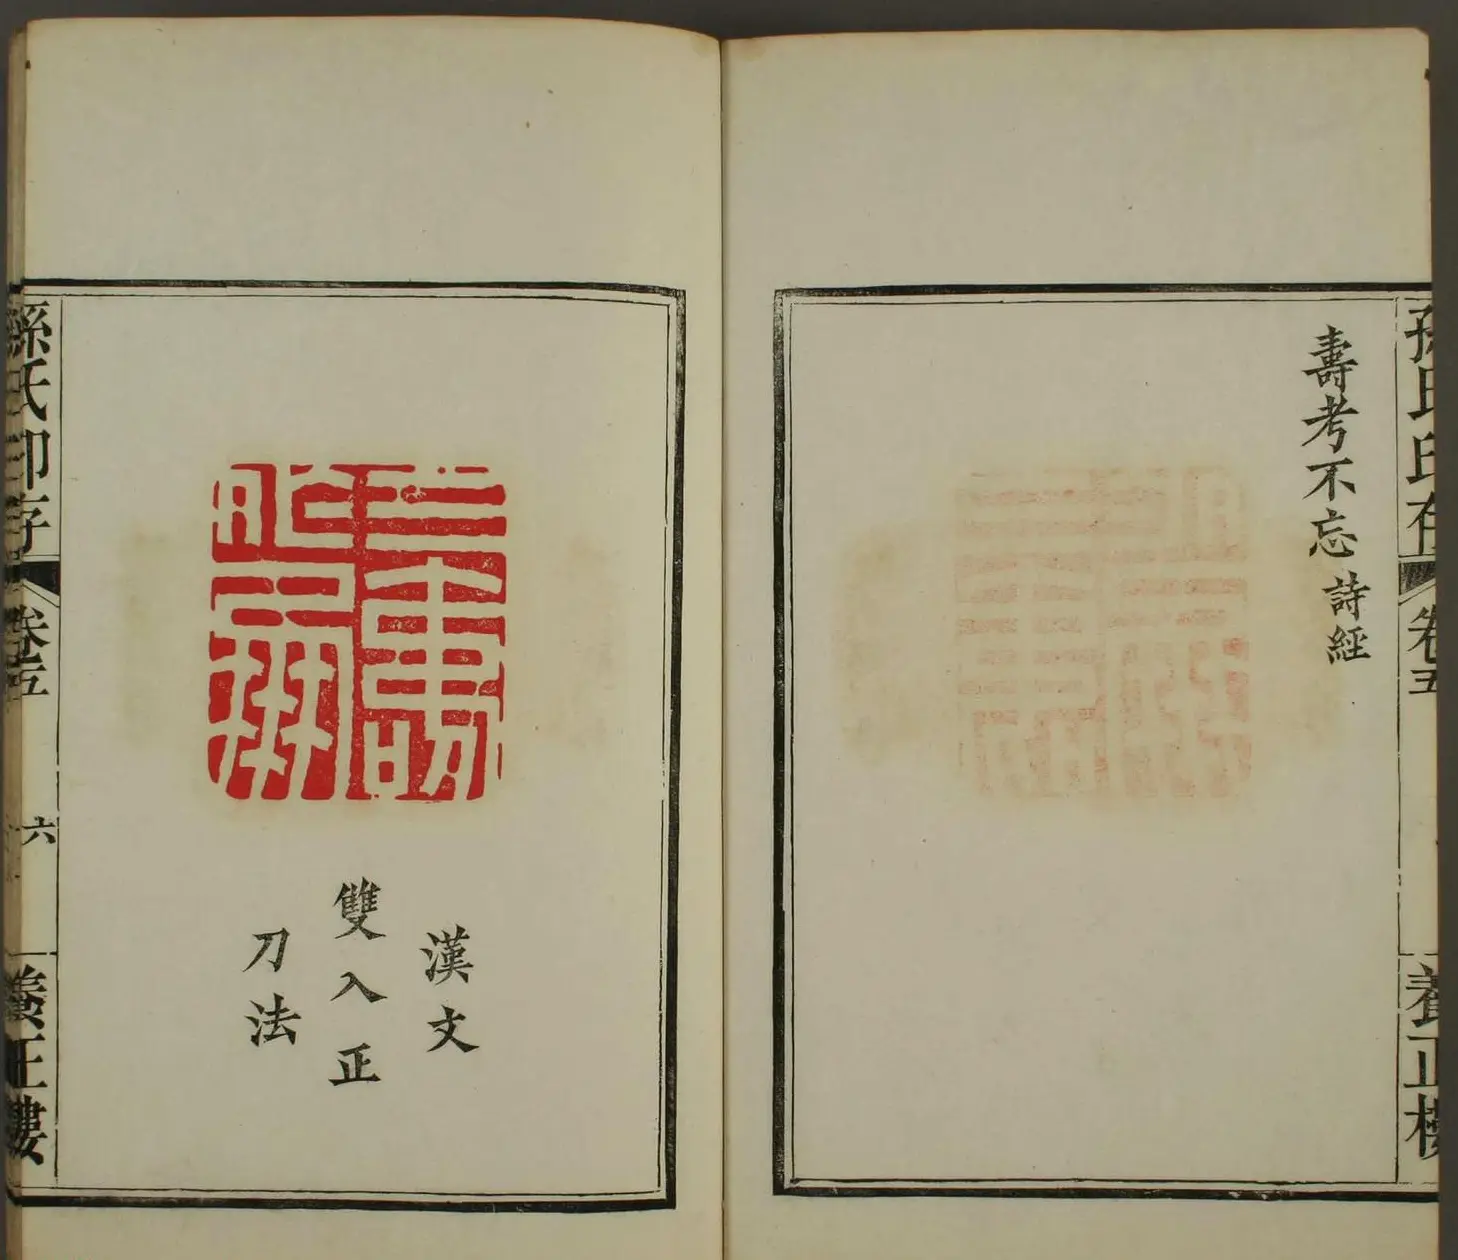 孫氏印存
卷五
養正樓
壽考不忘 詩經
漢文
雙入正
刀法
孫氏印存
卷五
六
養正樓